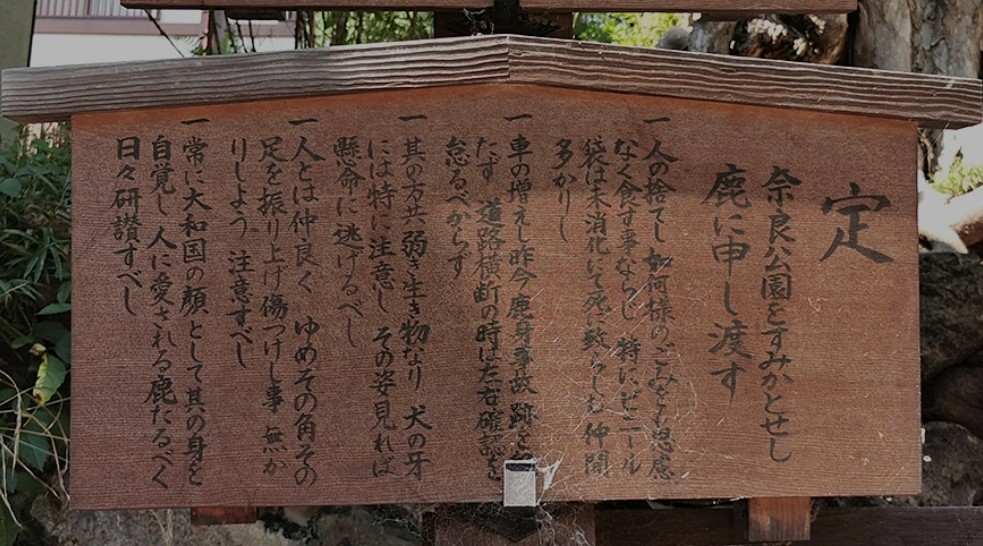 定
奈良公園をすみかとせし
鹿に申し渡す
一 人の捨てし如何様のごみとて思慮
なく食す事ならじ 特にビニール
袋は未消化にて死に致らしむ仲間
多かりし
一 車の増えし昨今鹿身事故 跡を
たず 道路横断の時は左右確認を
怠るべからず
一 其の方共 弱き生き物なり 犬の牙
には特に注意し その姿見れば
懸命に逃げるべし
一 人とは仲良く ゆめその角その
足を振り上げ傷つけし事 無か
りしよう 注意すべし
一 常に大和国の顔として其の身を
自覚し 人に愛される鹿たるべく
日々研讃すべし